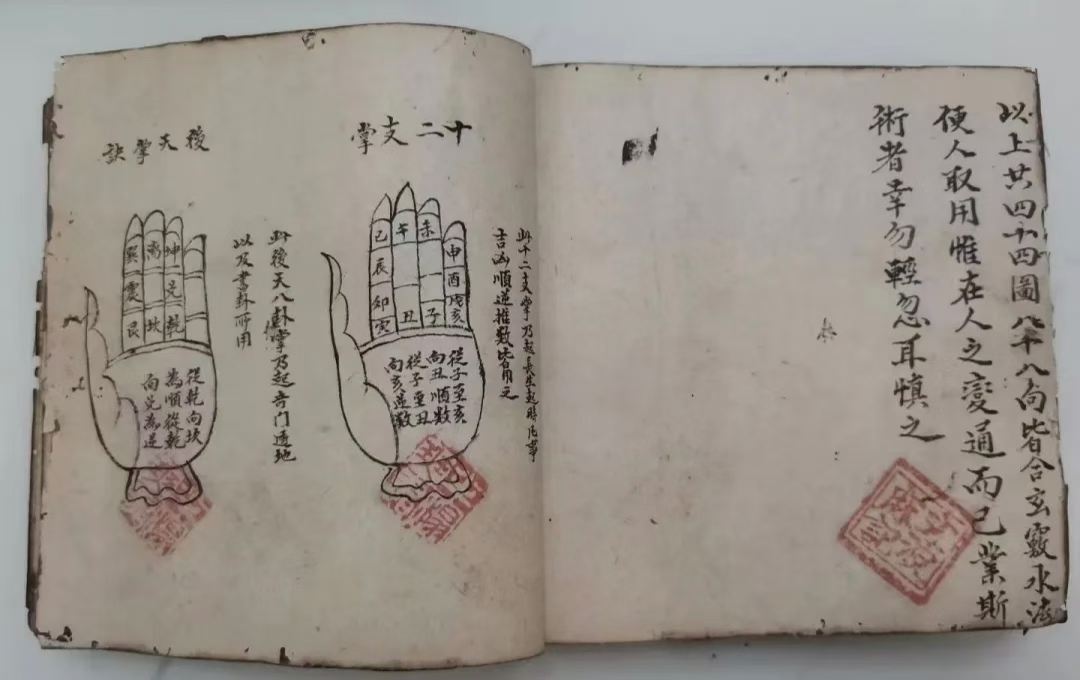 以上共四十四圖八十八局皆合玄竅水法
使人取用惟在人之變通而已業斯
術者幸勿輕忽耳慎之
十二支掌
此十二支掌乃起長生起時凡事
吉凶順逆推數皆用之
巳午未申
辰酉
卯戌
寅丑子亥
從子至亥
向丑順數
從子至丑
向亥逆數
後天掌訣
此後天八卦掌乃起奇門透地
以及書卦所用
巽離坤
震兌
艮坎乾
從乾向坎
為順從乾
向兌為逆